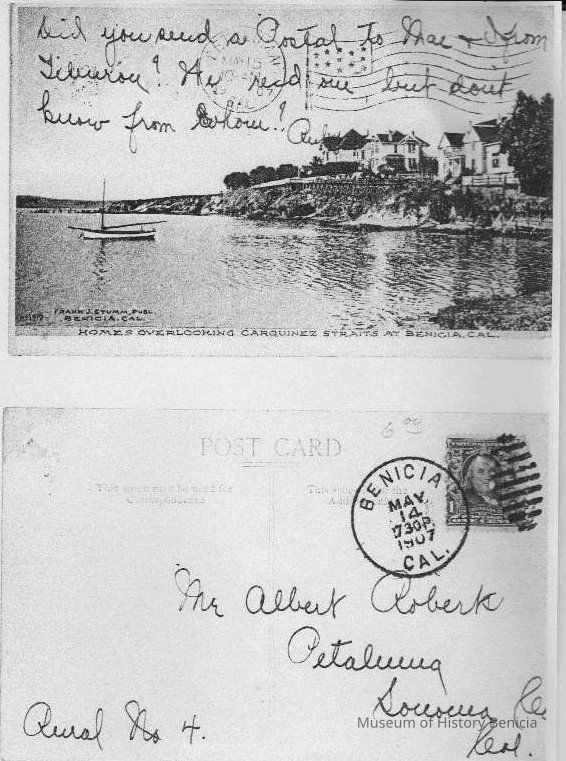 Did you send a Postal to Mae & I from
Tiburon? We red one but don't
know from whom?
MAY 15
FRANK J. STUMM, PUBL.
BENICIA, CAL.
HOMES OVERLOOKING CARQUINEZ STRAITS AT BENICIA, CAL.
6 00
POST CARD
This space may be used for
Correspondence
BENICIA
MAY
14
730P
1907
CAL.
Mr Albert Robert
Petaluma
Sonoma Co
Cal.
Rural No 4.
Museum of History Benicia